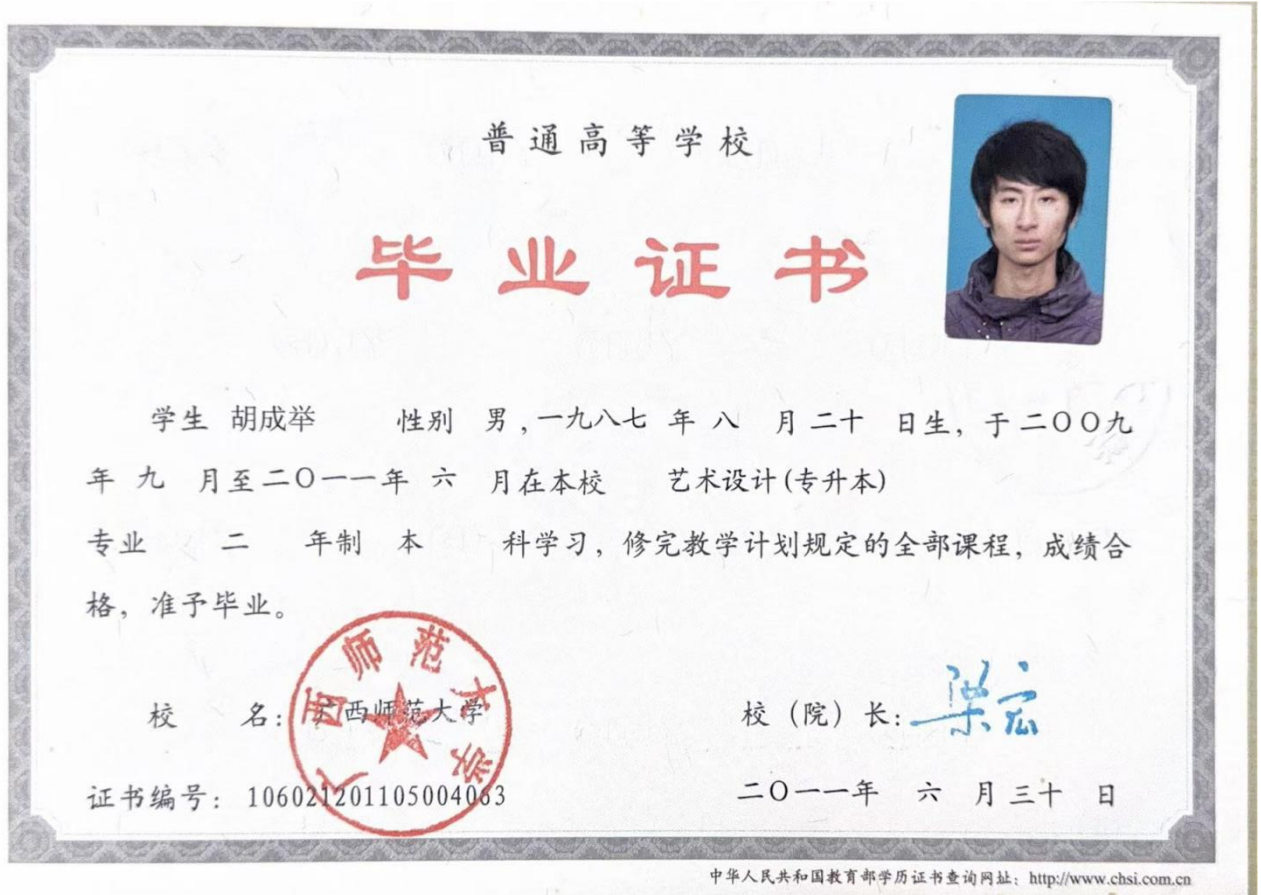 普通高等学校
毕业证书
学生 胡成举 性别 男,一九八七 年 八 月二十 日生, 于二〇〇九
年 九 月至二〇一一年 六 月在本校 艺术设计(专升本)
专业 二 年制 本 科学习, 修完教学计划规定的全部课程, 成绩合
格, 准予毕业。
广西师范大学
校 名: 广西师范大学 校 (院) 长: 梁宏
证书编号: 106021201105004063 二〇一一年 六 月三十 日
中华人民共和国教育部学历证书查询网址: http://www.chsi.com.cn